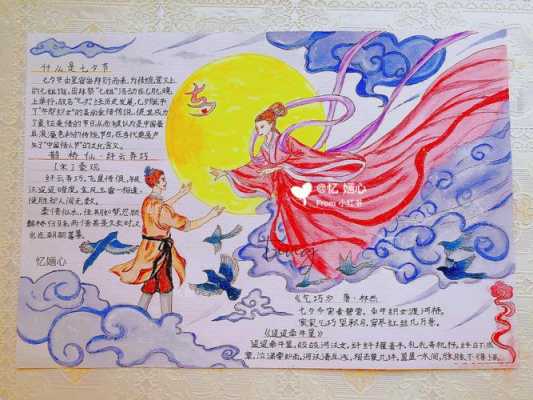 什么是七夕节
七夕节由星宿崇拜衍而来,为传统意义上
的七姐诞,因拜祭"七姐"活动在七月七晚
上举行,故名"七夕"。经历史发展,七夕赋予
了"牛郎织女"的美丽爱情传说,使其成为
了象征爱情的节日,从而被认为是中国最
具浪漫色彩的传统节日,在当代更是产
生了"中国情人节"的文化含义。
鹊桥仙·纤云弄巧
[宋]秦观
纤云弄巧,飞星传恨,银
汉迢迢暗度。金风玉露一相逢,
便胜却人间无数。
柔情似水,佳期如梦,忍顾
鹊桥归路。两情若是久长时,又
岂在朝朝暮暮。
忆婳心
七夕
@忆 婳心
From 小红书
《乞巧》 唐·林杰
七夕今宵看碧霄,牵牛织女渡河桥。
家家乞巧望秋月,穿尽红丝几万条。
《迢迢牵牛星》
迢迢牵牛星,皎皎河汉女。纤纤擢素手,札札弄机杼。终日不成
章,泣涕零如雨。河汉清且浅,相去复几许。盈盈一水间,脉脉不得语。